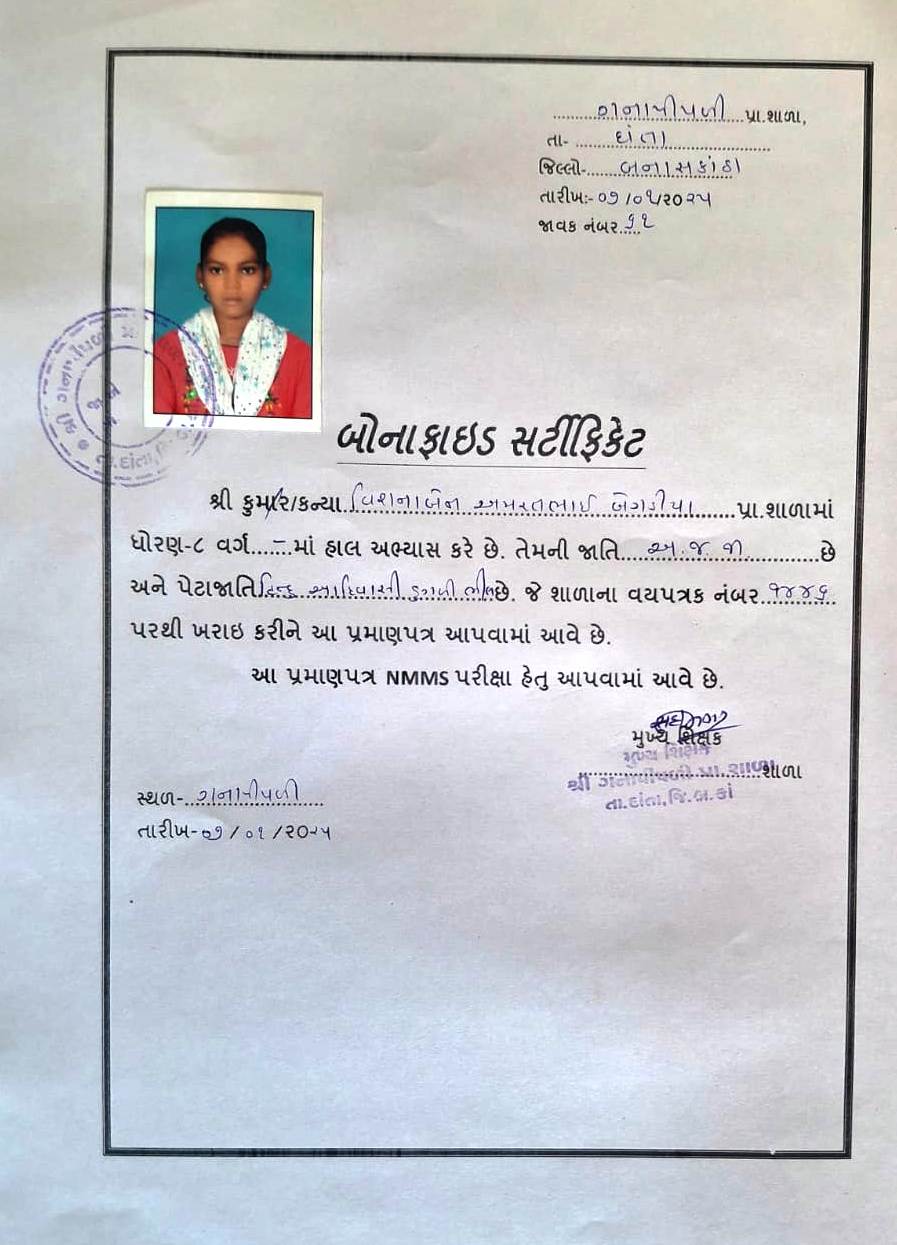 ગનાપીપળી પ્રા.શાળા,
તા- દાંતા
જિલ્લો- બનાસકાંઠા
તારીખ:- ૦૭/૦૧/૨૦૨૫
જાવક નંબર.
બોનાફાઇડ સર્ટીફિકેટ
શ્રી કુમાર/કન્યા અમરતભાઈ બેગડીયા પ્રા.શાળામાં
ધોરણ-૮ વર્ગ - માં હાલ અભ્યાસ કરે છે. તેમની જાતિ અ.જ.જા. છે
અને પેટાજાતિ હિન્દુ આદિવાસી ડુંગરી ભીલ છે. જે શાળાના વયપત્રક નંબર ૧૪૪૬
પરથી ખરાઇ કરીને આ પ્રમાણપત્ર આપવામાં આવે છે.
આ પ્રમાણપત્ર NMMS પરીક્ષા હેતુ આપવામાં આવે છે.
મુખ્ય શિક્ષક
મુખ્ય શિક્ષક
શ્રી ગનાપીપળી પ્રા.શાળા શાળા
તા.દાંતા,જિ.બ.કાં
સ્થળ- ગનાપીપળી
તારીખ- ૦૭/૦૧/૨૦૨૫